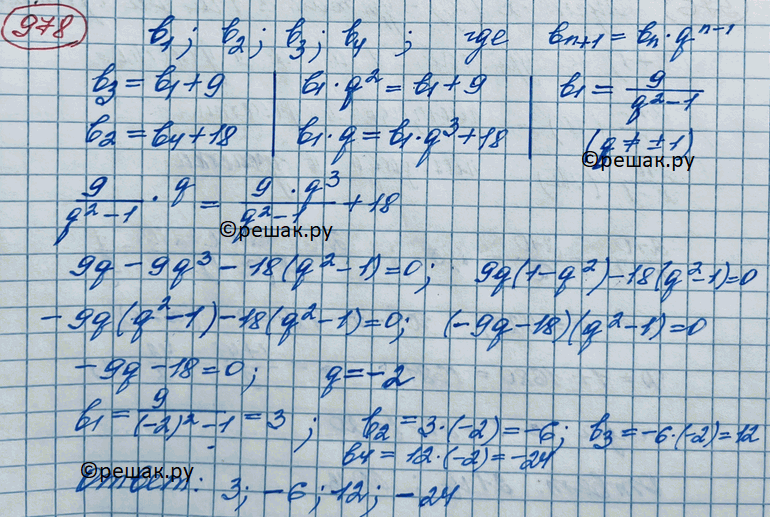 978 b₁; b₂; b₃; b₄; где bₙ₊₁ = bₙ·qⁿ⁻¹
b₃ = b₁ + 9 | b₁·q² = b₁ + 9 | b₁ = 9/(q²-1)
b₂ = b₄ + 18 | b₁·q = b₁·q³ + 18 | (q ≠ ±1)
©решак.ру
9/(q²-1) · q = 9·q³/(q²-1) + 18
©решак.ру
9q - 9q³ - 18(q²-1) = 0; 9q(1-q²) - 18(q²-1) = 0
- 9q(q²-1) - 18(q²-1) = 0; (-9q-18)(q²-1) = 0
- 9q - 18 = 0; q = -2
b₁ = 9/((-2)²-1) = 3; b₂ = 3·(-2) = -6; b₃ = -6·(-2) = 12
b₄ = 12·(-2) = -24
©решак.ру
Ответ: 3; -6; 12; -24